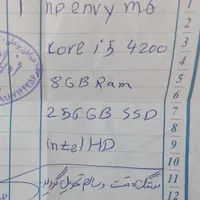 1 hp envy m6
Core i5 4200
8GB Ram
256GB SSD
intel HD
دستگاه تست و سالم تحویل گردید
1
2
3
4
5
6
7
8
9
10
11
12